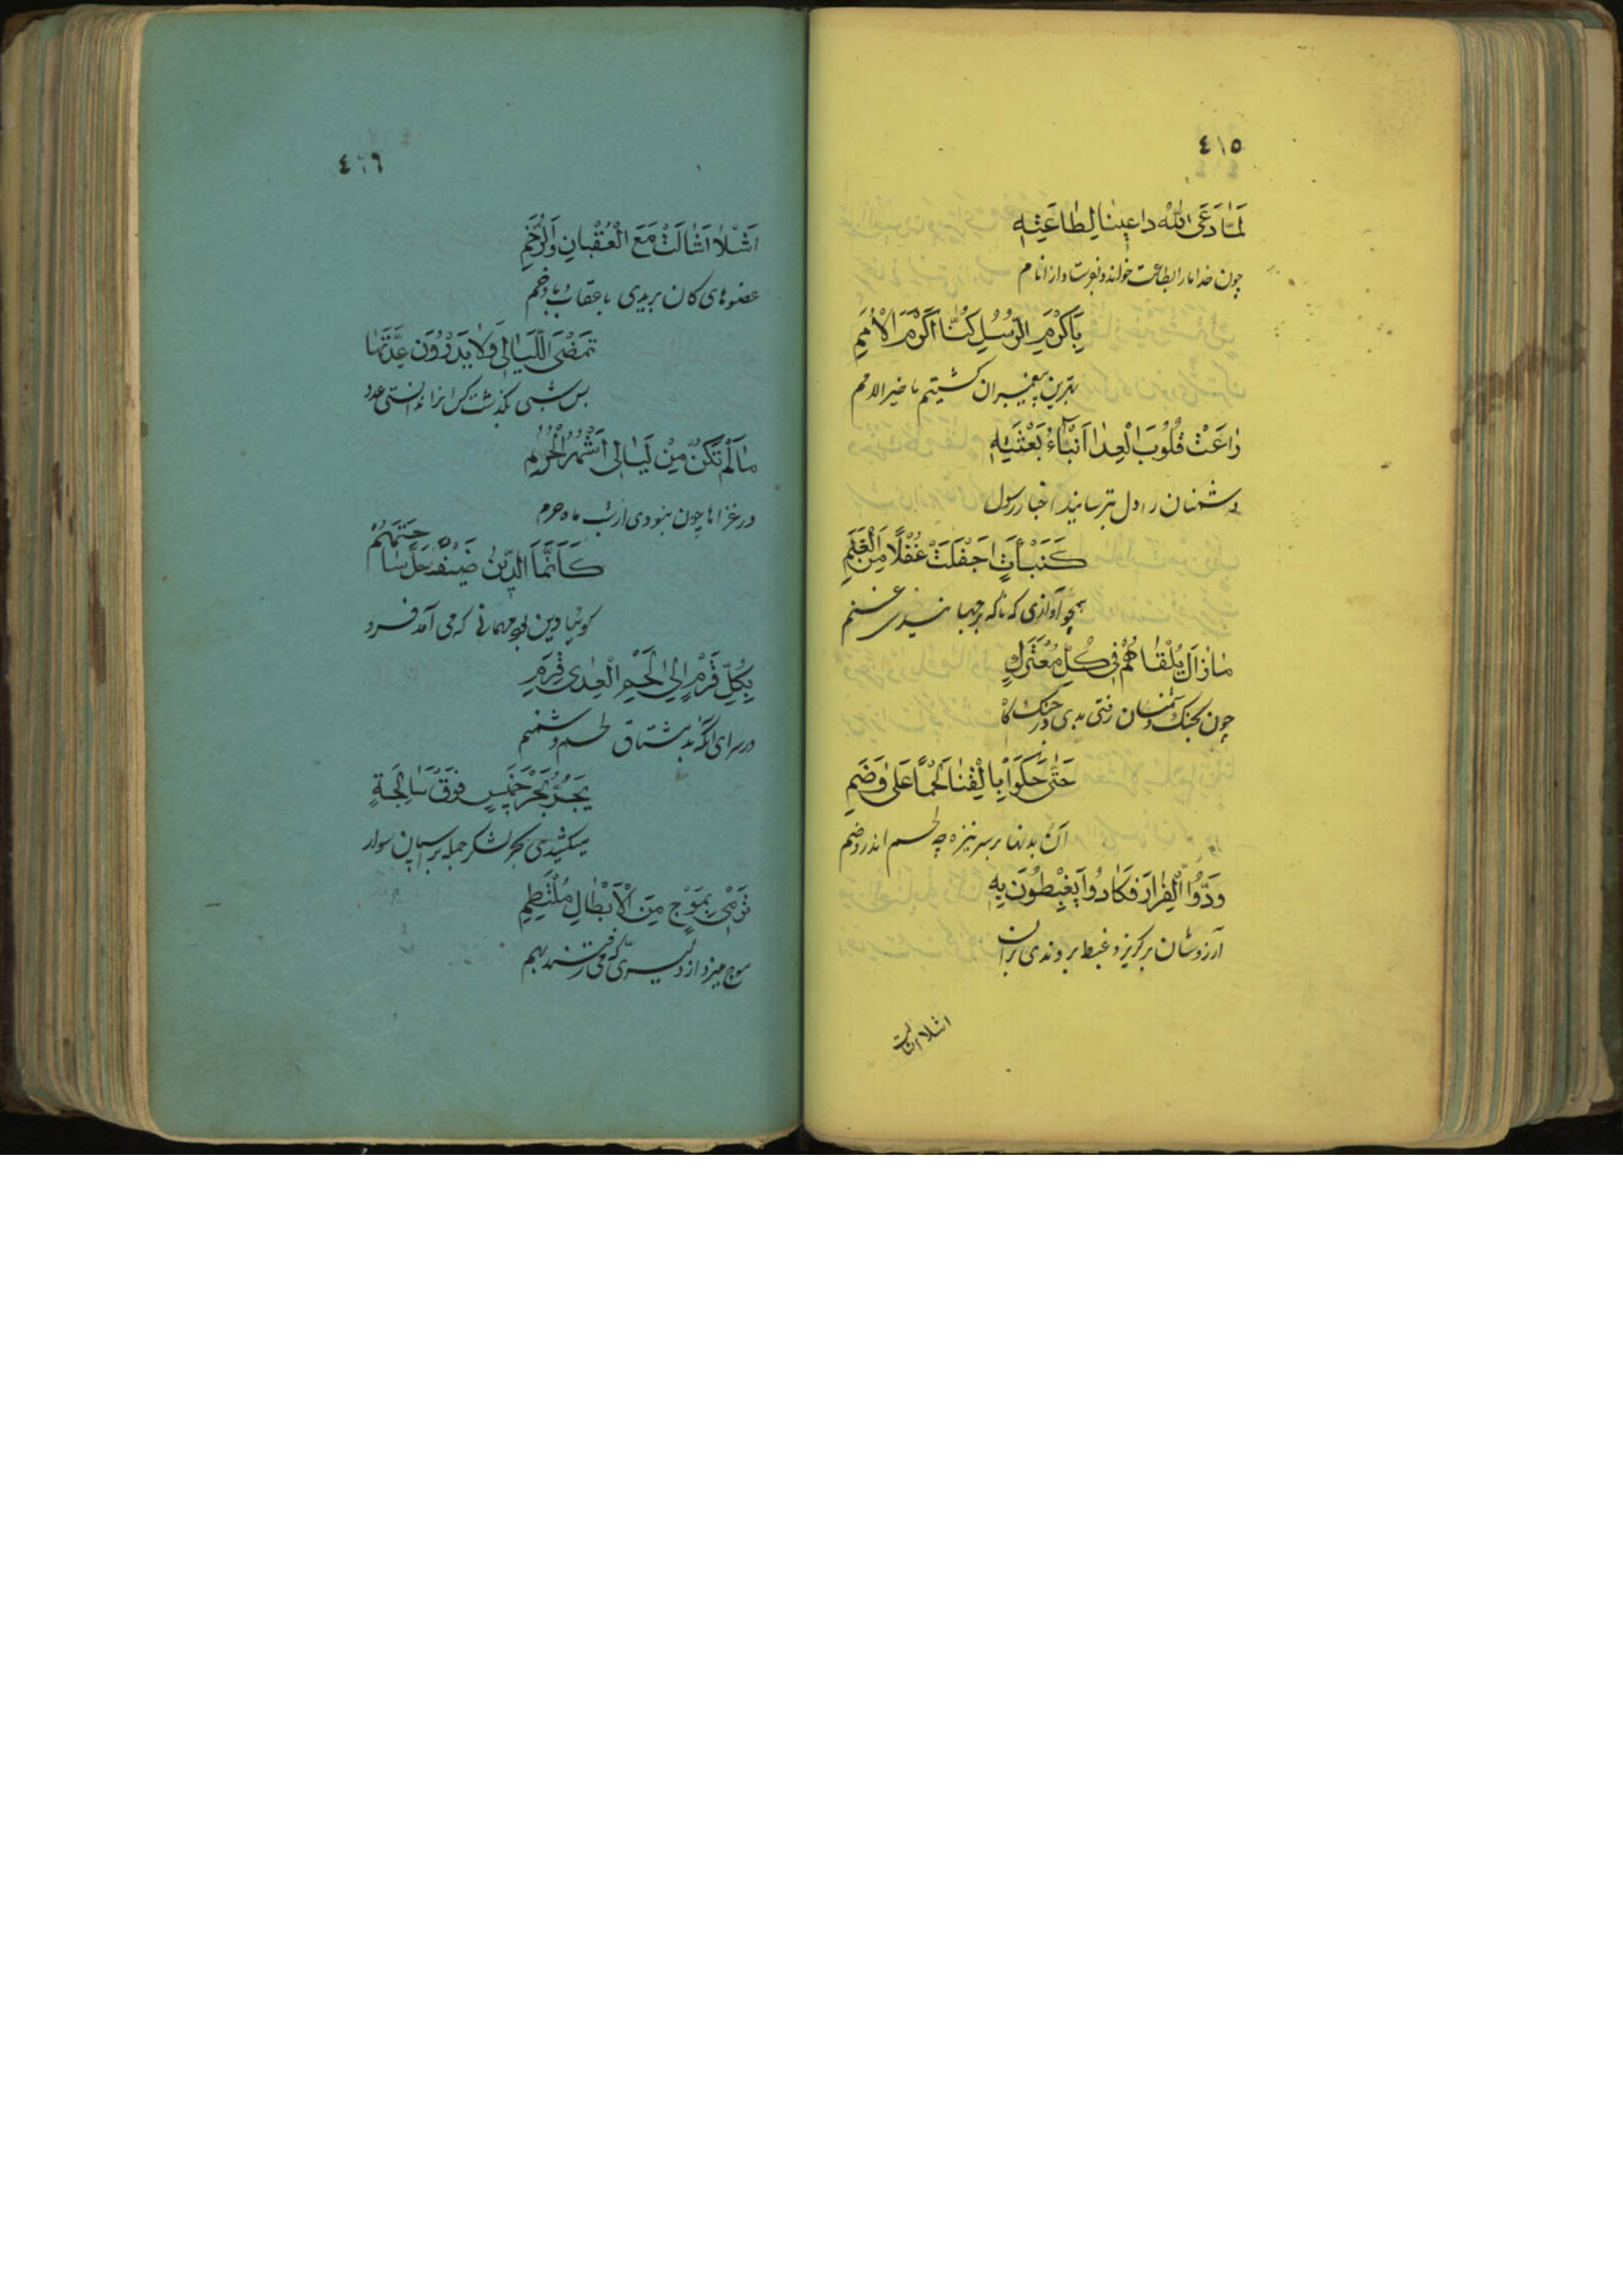 ٤١٥
لَمَّا دَعَی اللّٰهُ داعِینٰا لِطٰاعَتِهِ
چون خدا ما را بطاعت خواند و بفرستاد از انام
بِاَکْرَمِ الرُّسُلِ کُنّٰا اَکْرَمَ الْاُمَمِ
بهترین پیغمبران گشتیم ما خیر الامم
رٰاعَتْ قُلُوبَ الْعِدٰا اَنْبٰاءُ بَعْثَتِهِ
دشمنان را دل بترسانید اخبار رسول
کَنَبْأَتٍ اَجْفَلَتْ غُفْلًا مِنَ الْغَنَمِ
همچو آوازی که ناکه بر جهاند غنم
مٰازٰالَ یَلْقٰاهُمُ فِی کُلِّ مُعْتَرَكٍ
چون بجنگ دشمنان رفتی بدی در جنگ کاه
حَتّٰی حَکَوْا بِالْقَنٰا لَحْمًا عَلیٰ وَضَمِ
آن بدنها بر سر نیزه چه لحم اندر وضم
وَدُّوا الْفِرٰارَ فَکٰادُوا یَغْبِطُونَ بِهِ
آرزوشان بر کریز و غبطه بروندی بر آن
اشلا اشالت
٤١٦
اَشْلٰا اَشٰالَتْ مَعَ الْعُقْبٰانِ وَالرَّخَمِ
عضوهای کان بریدی با عقاب و با رخم
تَمْضِی اللَّیٰالِی وَلٰا یَدْرُونَ عِدَّتَهٰا
بس شبی بگذشت کس آنرا ندانستی عدد
مٰالَمْ تَکُنْ مِنْ لَیٰالِی اَشْهُرِ الْحُرُمِ
در غزاها چون نبودی از شب ماه حرم
کَاَنَّمَا الدِّینُ ضَیْفٌ حَلَّ سٰاحَتَهُمْ
گوئیا دین بود مهمانی که می آمد فرود
بِکُلِّ قَرْمٍ اِلیٰ لَحْمِ الْعِدٰی قَرِمِ
در سرای آنکه بد مشتاق لحم دشمنم
یَجُرُّ بَحْرَ خَمِیسٍ فَوْقَ سٰابِحَةٍ
میکشیدی بحر لشکر جمله بر اسبان سوار
تَرْمِی بِمَوْجٍ مِنَ الْاَبْطٰالِ مُلْتَطِمِ
موج میزد از دلیری